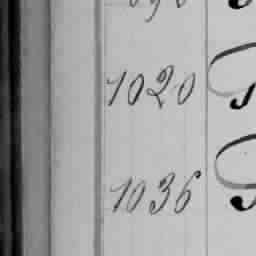 1020
1036